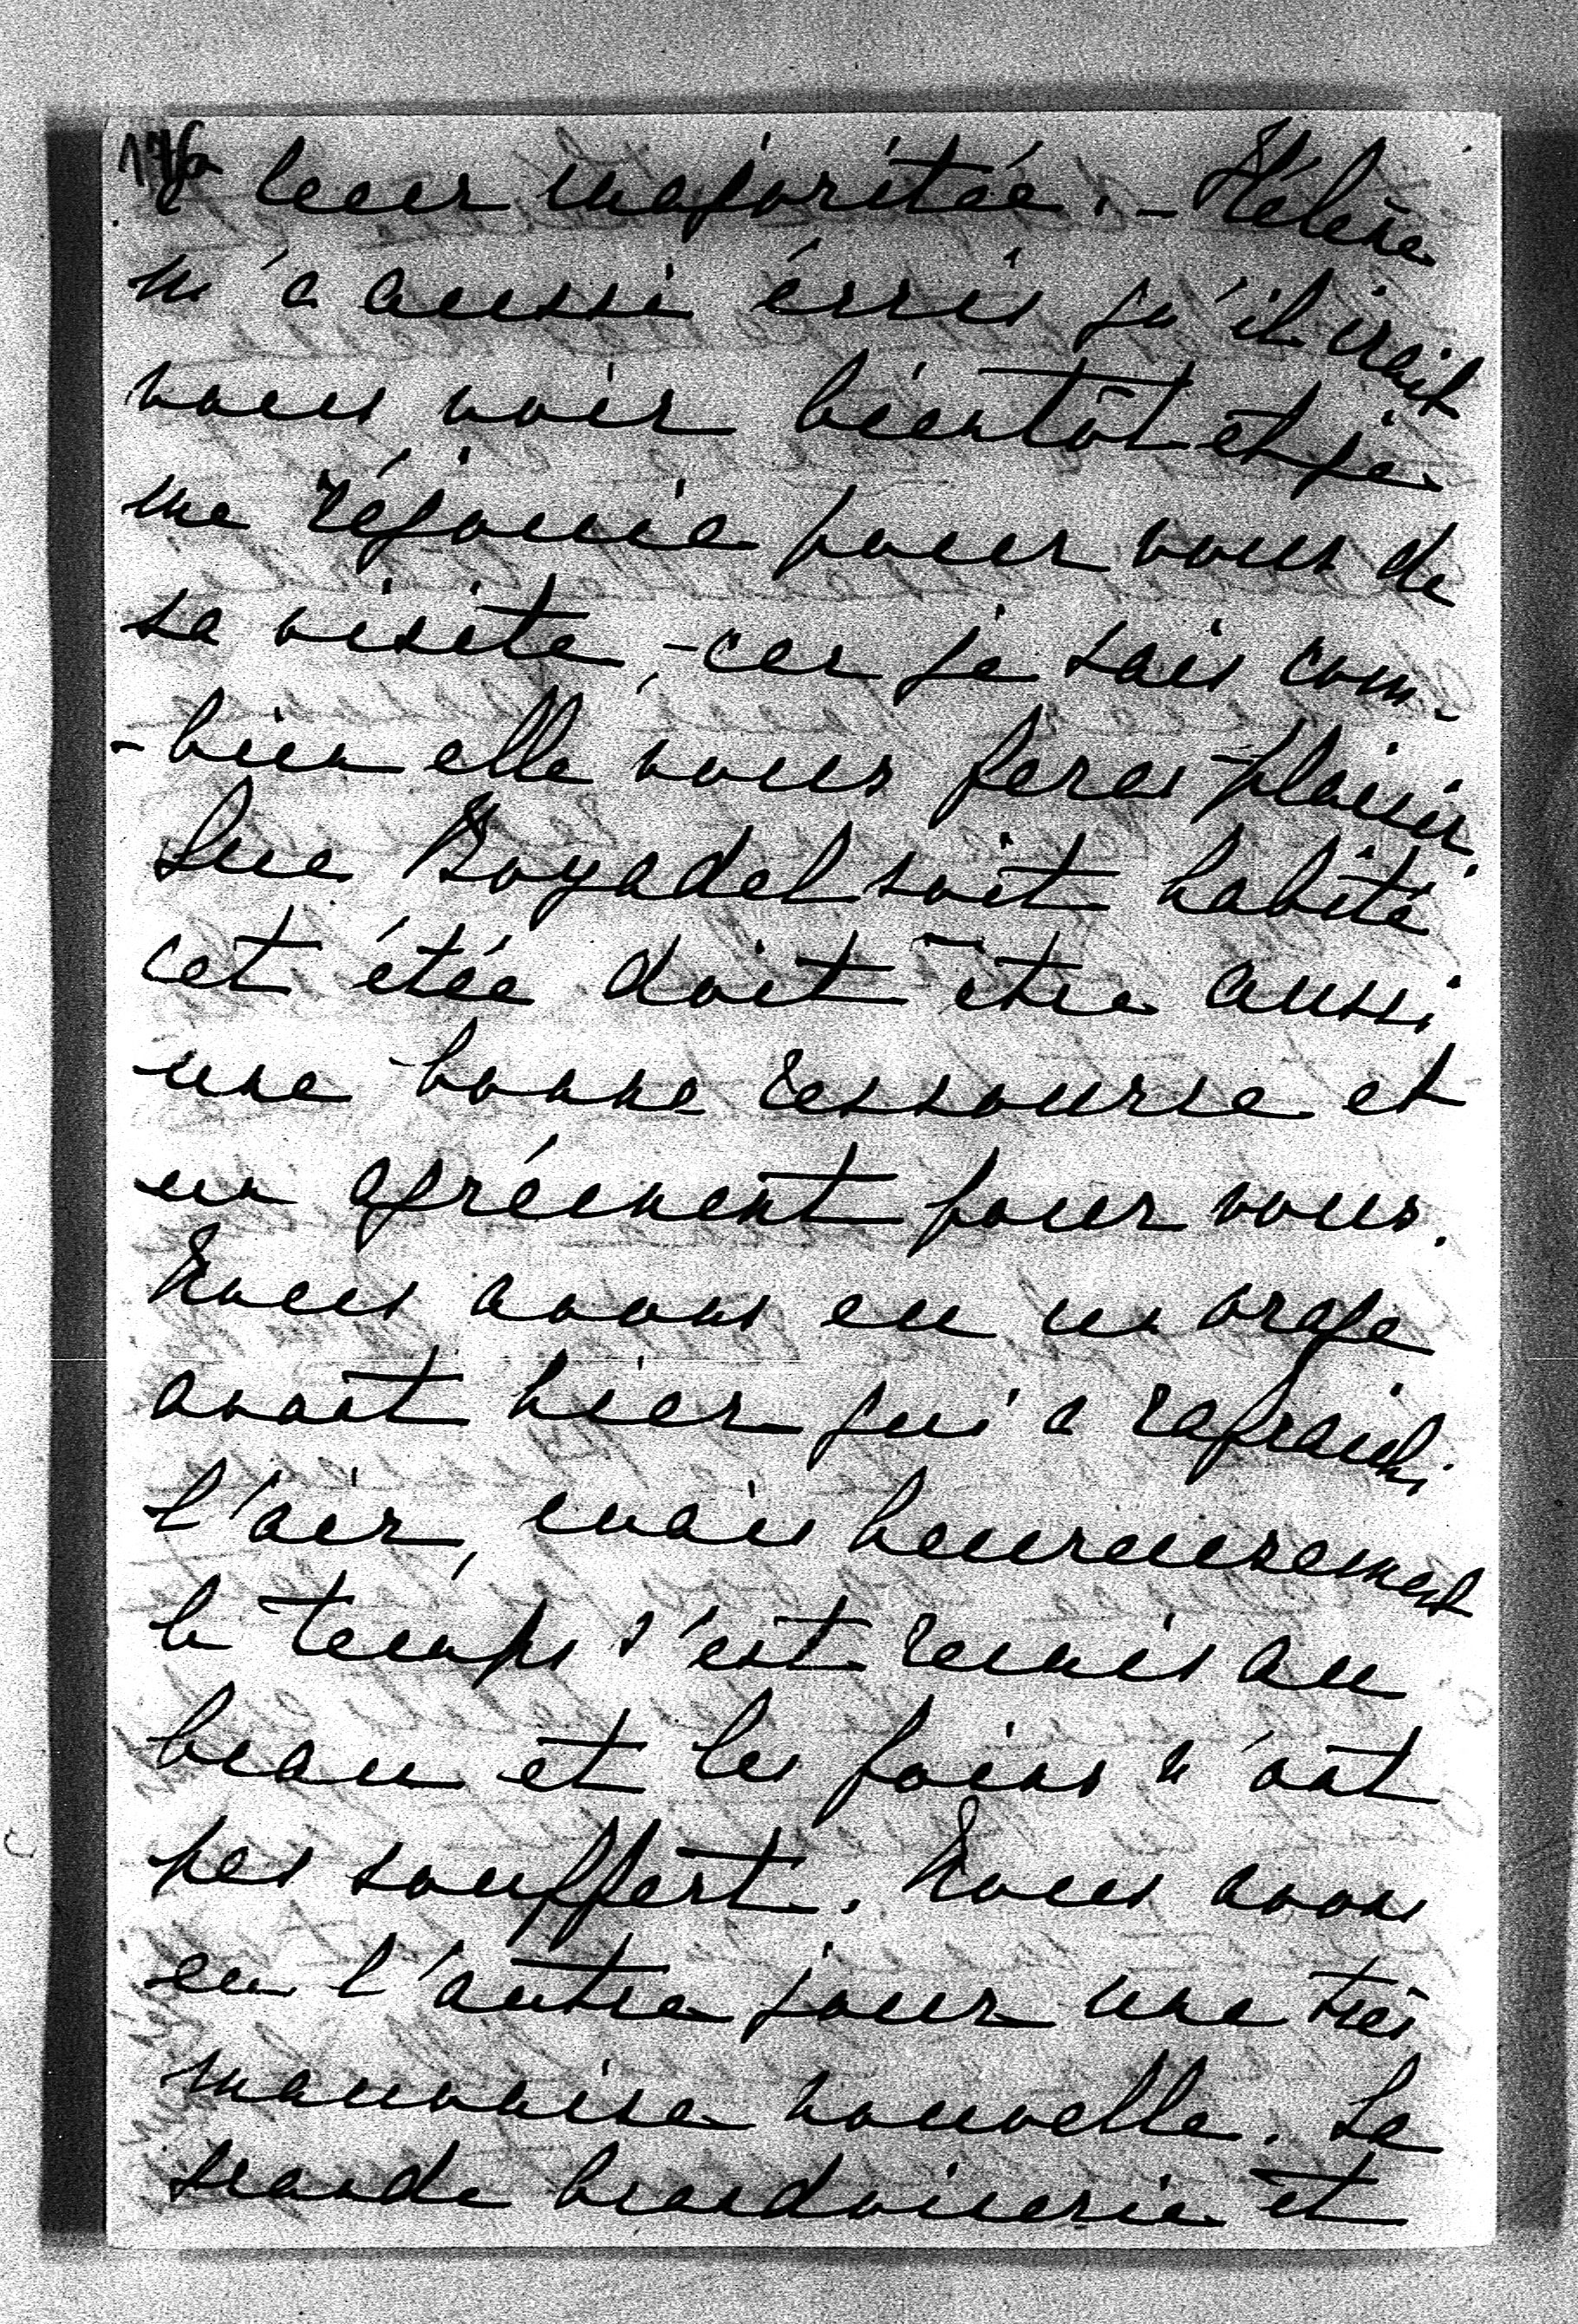 176
à leur majoritée. – Hélène
m'a aussi écris qu'il irait
vous voir bientôt et je
me réjouie pour vous de
sa visite, – car je sais com-
-bien elle vous feras plaisir.
Que soit habité
cet étée doit être aussi
une bonne ressource et
un agrément pour vous.
Nous avons eu un orage
avant hier qui a rafraichi
l'air, mais heureusement
le temps s'est remis au
beau et les foins n'ont
pas souffert. Nous avons
eu l'autre jour une très
mauvaise nouvelle. La
grande et